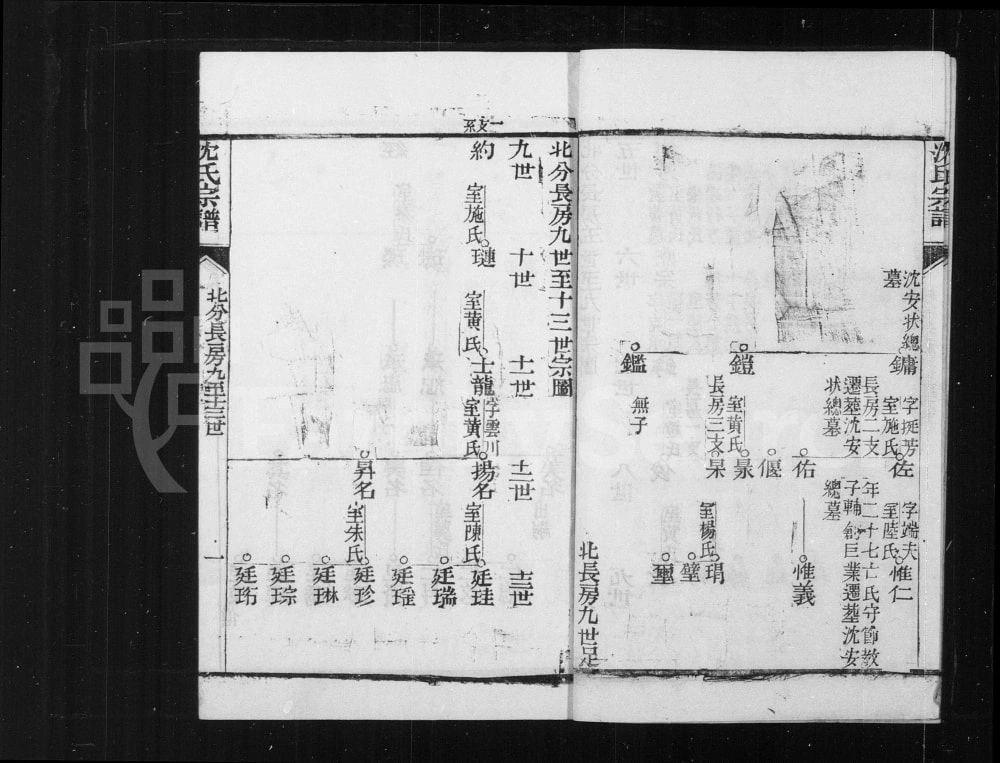 沈氏宗譜
沈安狀總
墓
鏞
字挺芳
室施氏
長房二支
遷墓沈安
狀總墓
佐
字端夫
室陸氏
年二十七亡氏守節教
子輔創巨業遷墓沈安
總墓
惟仁
佑
惟義
偃
鎧
室黄氏
長房三支
景
杲
室楊氏
珇
璧
璽
鑑
無子
北長房九世足
北分長房九世至十三世宗圖
九世
十世
十一世
十二世
十三世
一支系
約
室施氏
璉
室黄氏
士龍
字雲川
室黄氏
揚名
室陳氏
廷珪
廷瑞
廷瑶
昇名
室朱氏
廷珍
廷琳
廷琮
廷珩
沈氏宗譜
北分長房九至十三世
一